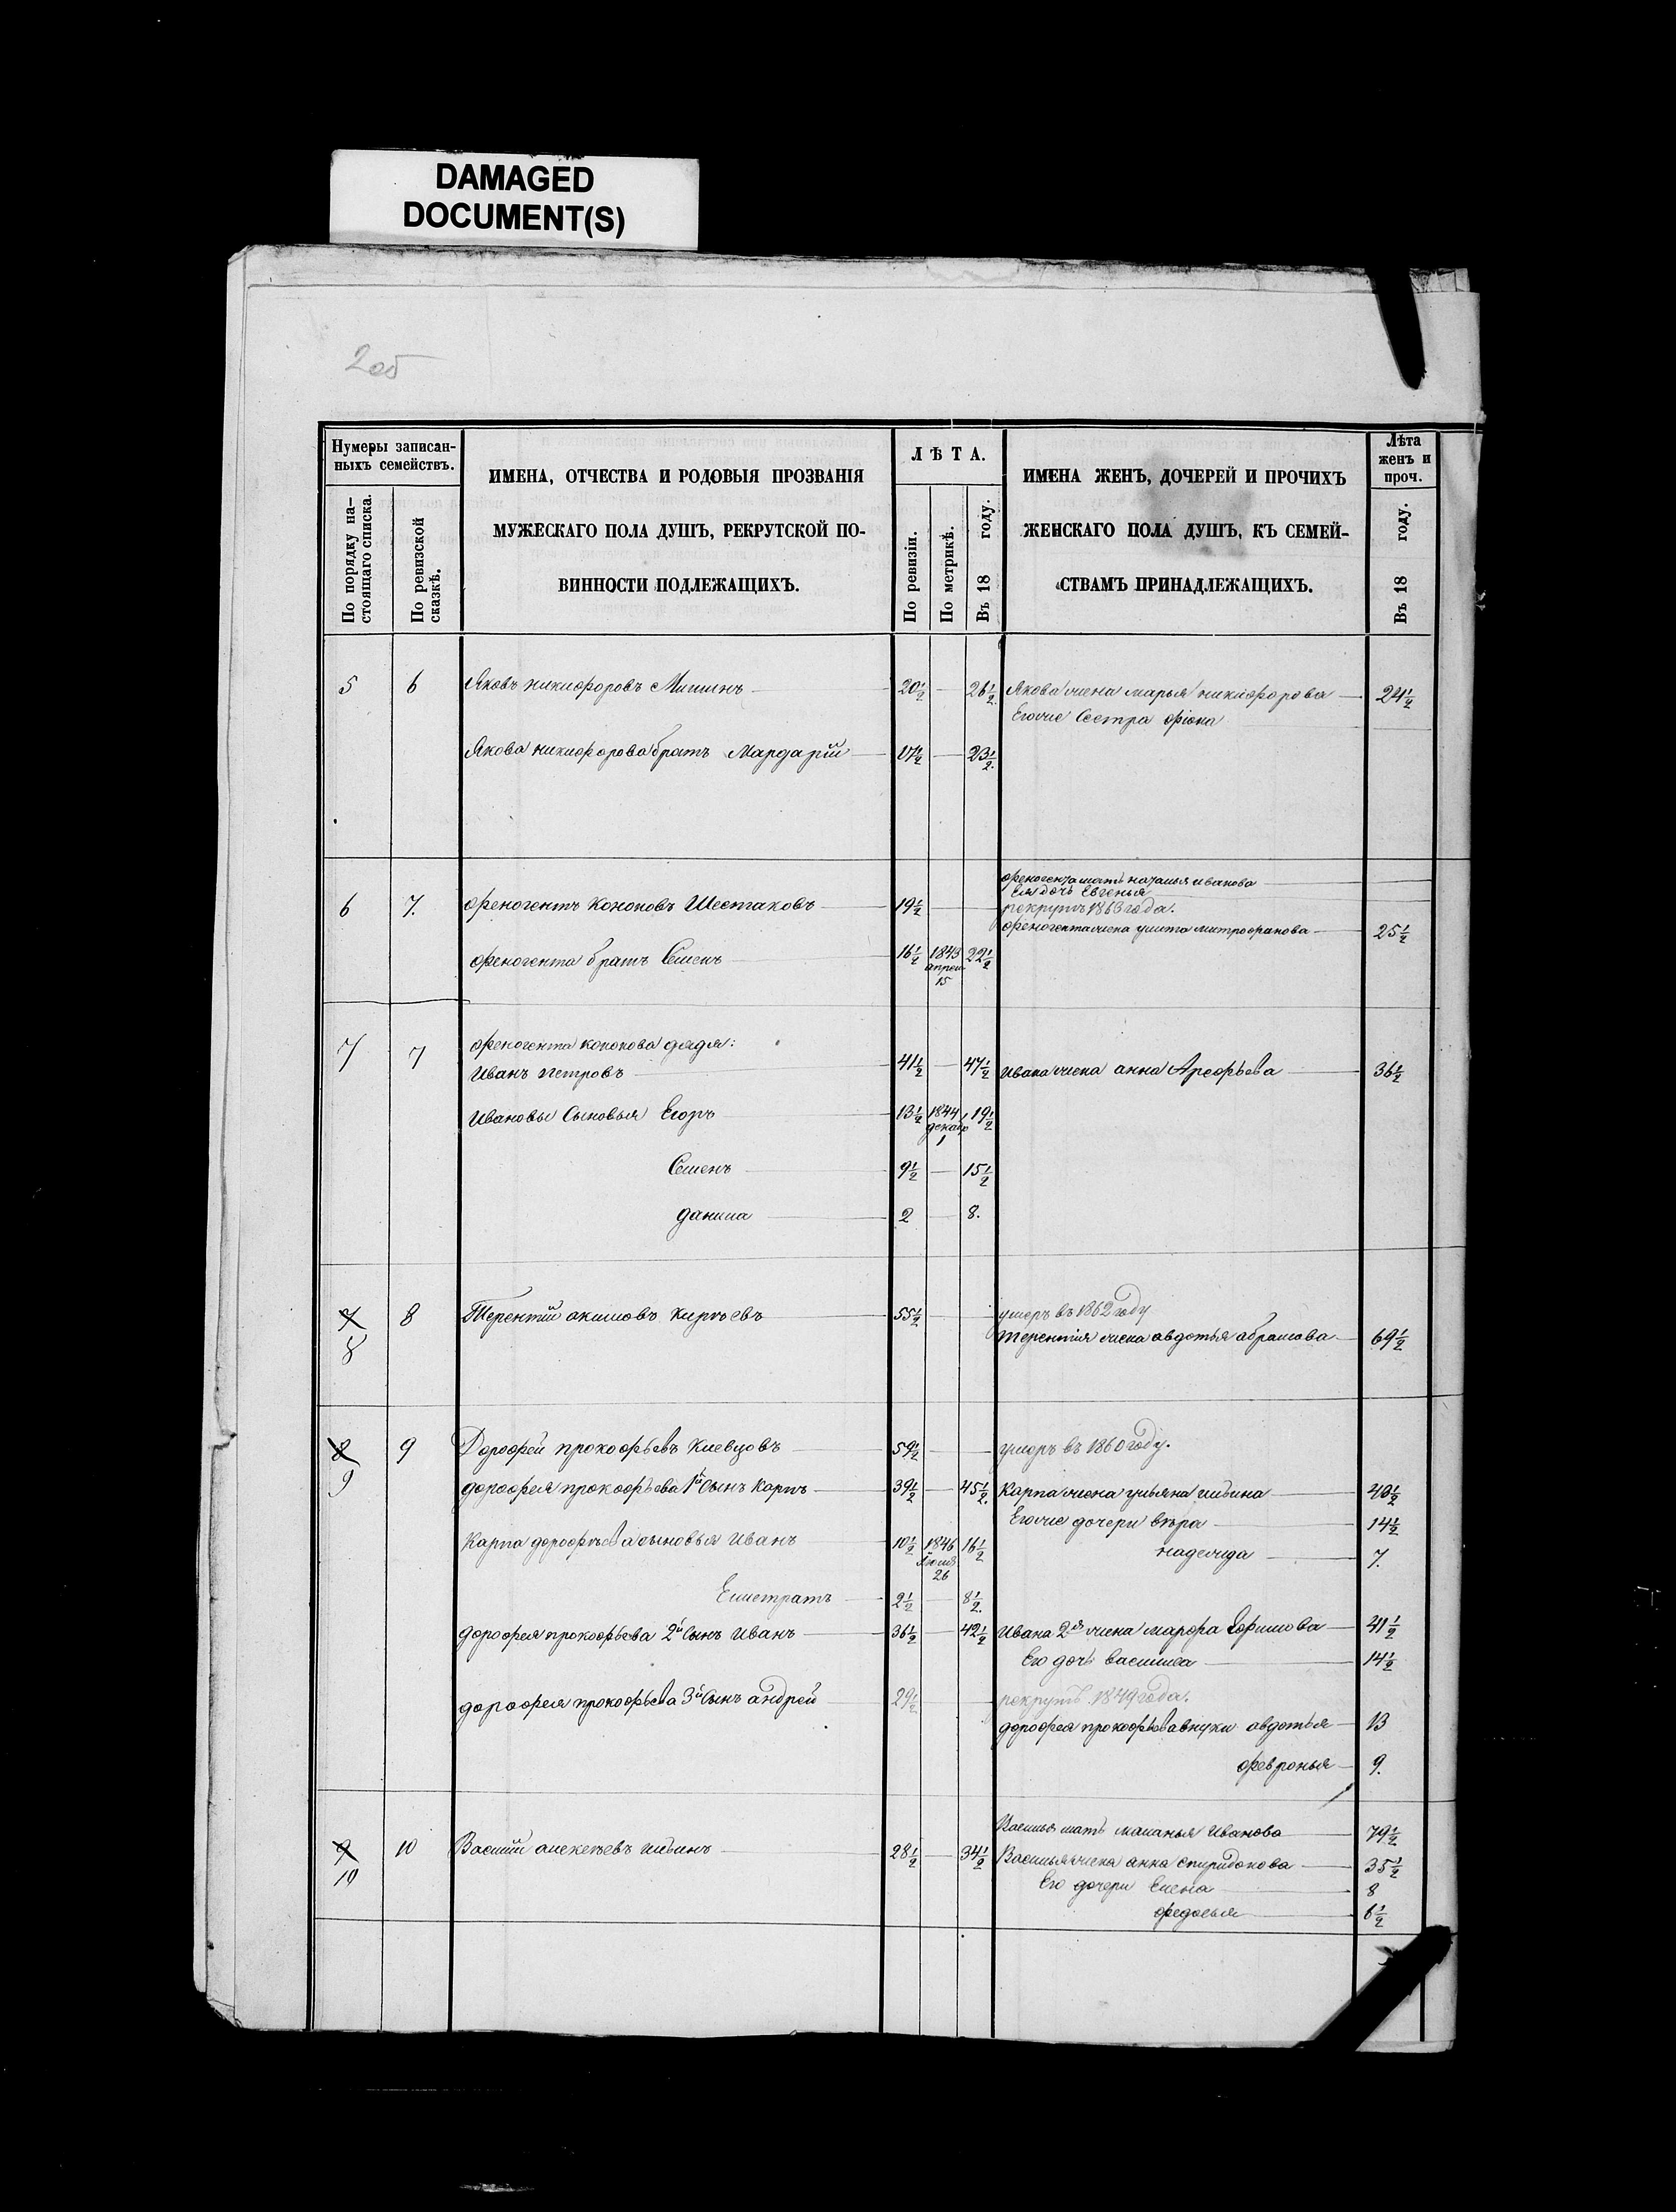 DAMAGED
DOCUMENT(S)
205
Нумеры записан-
ныхъ семействъ.
По порядку на-
стоящаго списка.
По ревизской
сказкѣ.
ИМЕНА, ОТЧЕСТВА И РОДОВЫЯ ПРОЗВАНІЯ
МУЖЕСКАГО ПОЛА ДУШЪ, РЕКРУТСКОЙ ПО-
ВИННОСТИ ПОДЛЕЖАЩИХЪ.
ЛѢТА.
По ревизіи.
По метрикѣ.
Въ 18 году.
ИМЕНА ЖЕНЪ, ДОЧЕРЕЙ И ПРОЧИХЪ
ЖЕНСКАГО ПОЛА ДУШЪ, КЪ СЕМЕЙ-
СТВАМЪ ПРИНАДЛЕЖАЩИХЪ.
Лѣта
женъ и
проч.
Въ 18 году.
5 6 Яковъ никифоровъ Мишинъ 20½ 26½ Якова жена марья никифорова 24½
Егоже Сестра фіона
Якова никифорова братъ Мардарій 17½ 23½
феногента мать наталья иванова
Ея дочь Евгенья
6 7. феногентъ Кононовъ Шестаковъ 19½ рекрутъ 1863 года.
феногента жена улита митрофанова 25½
феногента братъ Семенъ 16½ 1843 22½
апрел
15
7 7 феногента кононова дядя:
Иванъ петровъ 41½ 47½ ивана жена анна Арефьева 36½
Ивановы Сыновья Егоръ 13½ 1844 19½
декабр
1
Семенъ 9½ 15½
данила 2 8.
7 8 Терентій акимовъ 55½ умеръ въ 1862 году
8 терентія жена авдотья абрамова 69½
8 9 Дорофей прокофьевъ Киевцовъ 59½ умеръ въ 1860 году.
9 дорофея прокофьева 1й Сынъ Карпъ 39½ 45½ Карпа жена ульяна ильина 40½
Егоже дочери вѣра 14½
Карпа дорофѣева сыновья Иванъ 10½ 1846 16½
26
надежда 7.
Елистратъ 2½ 8½
дорофея прокофьева 2й Сынъ Иванъ 36½ 42½ Ивана 2я жена марфа Ефимова 41½
Его дочь василиса 14½
дорофея прокофьева 3й Сынъ андрей 29½ рекрутъ 1849 года.
дорофея прокофьева внуки авдотья 13
февронья 9.
Василья мать маланья Иванова 79½
9 10 Василій алексѣевъ ильинъ 28½ 34½ Василья жена анна спиридонова 35½
10 Его дочери Елена 8
федосья 6½